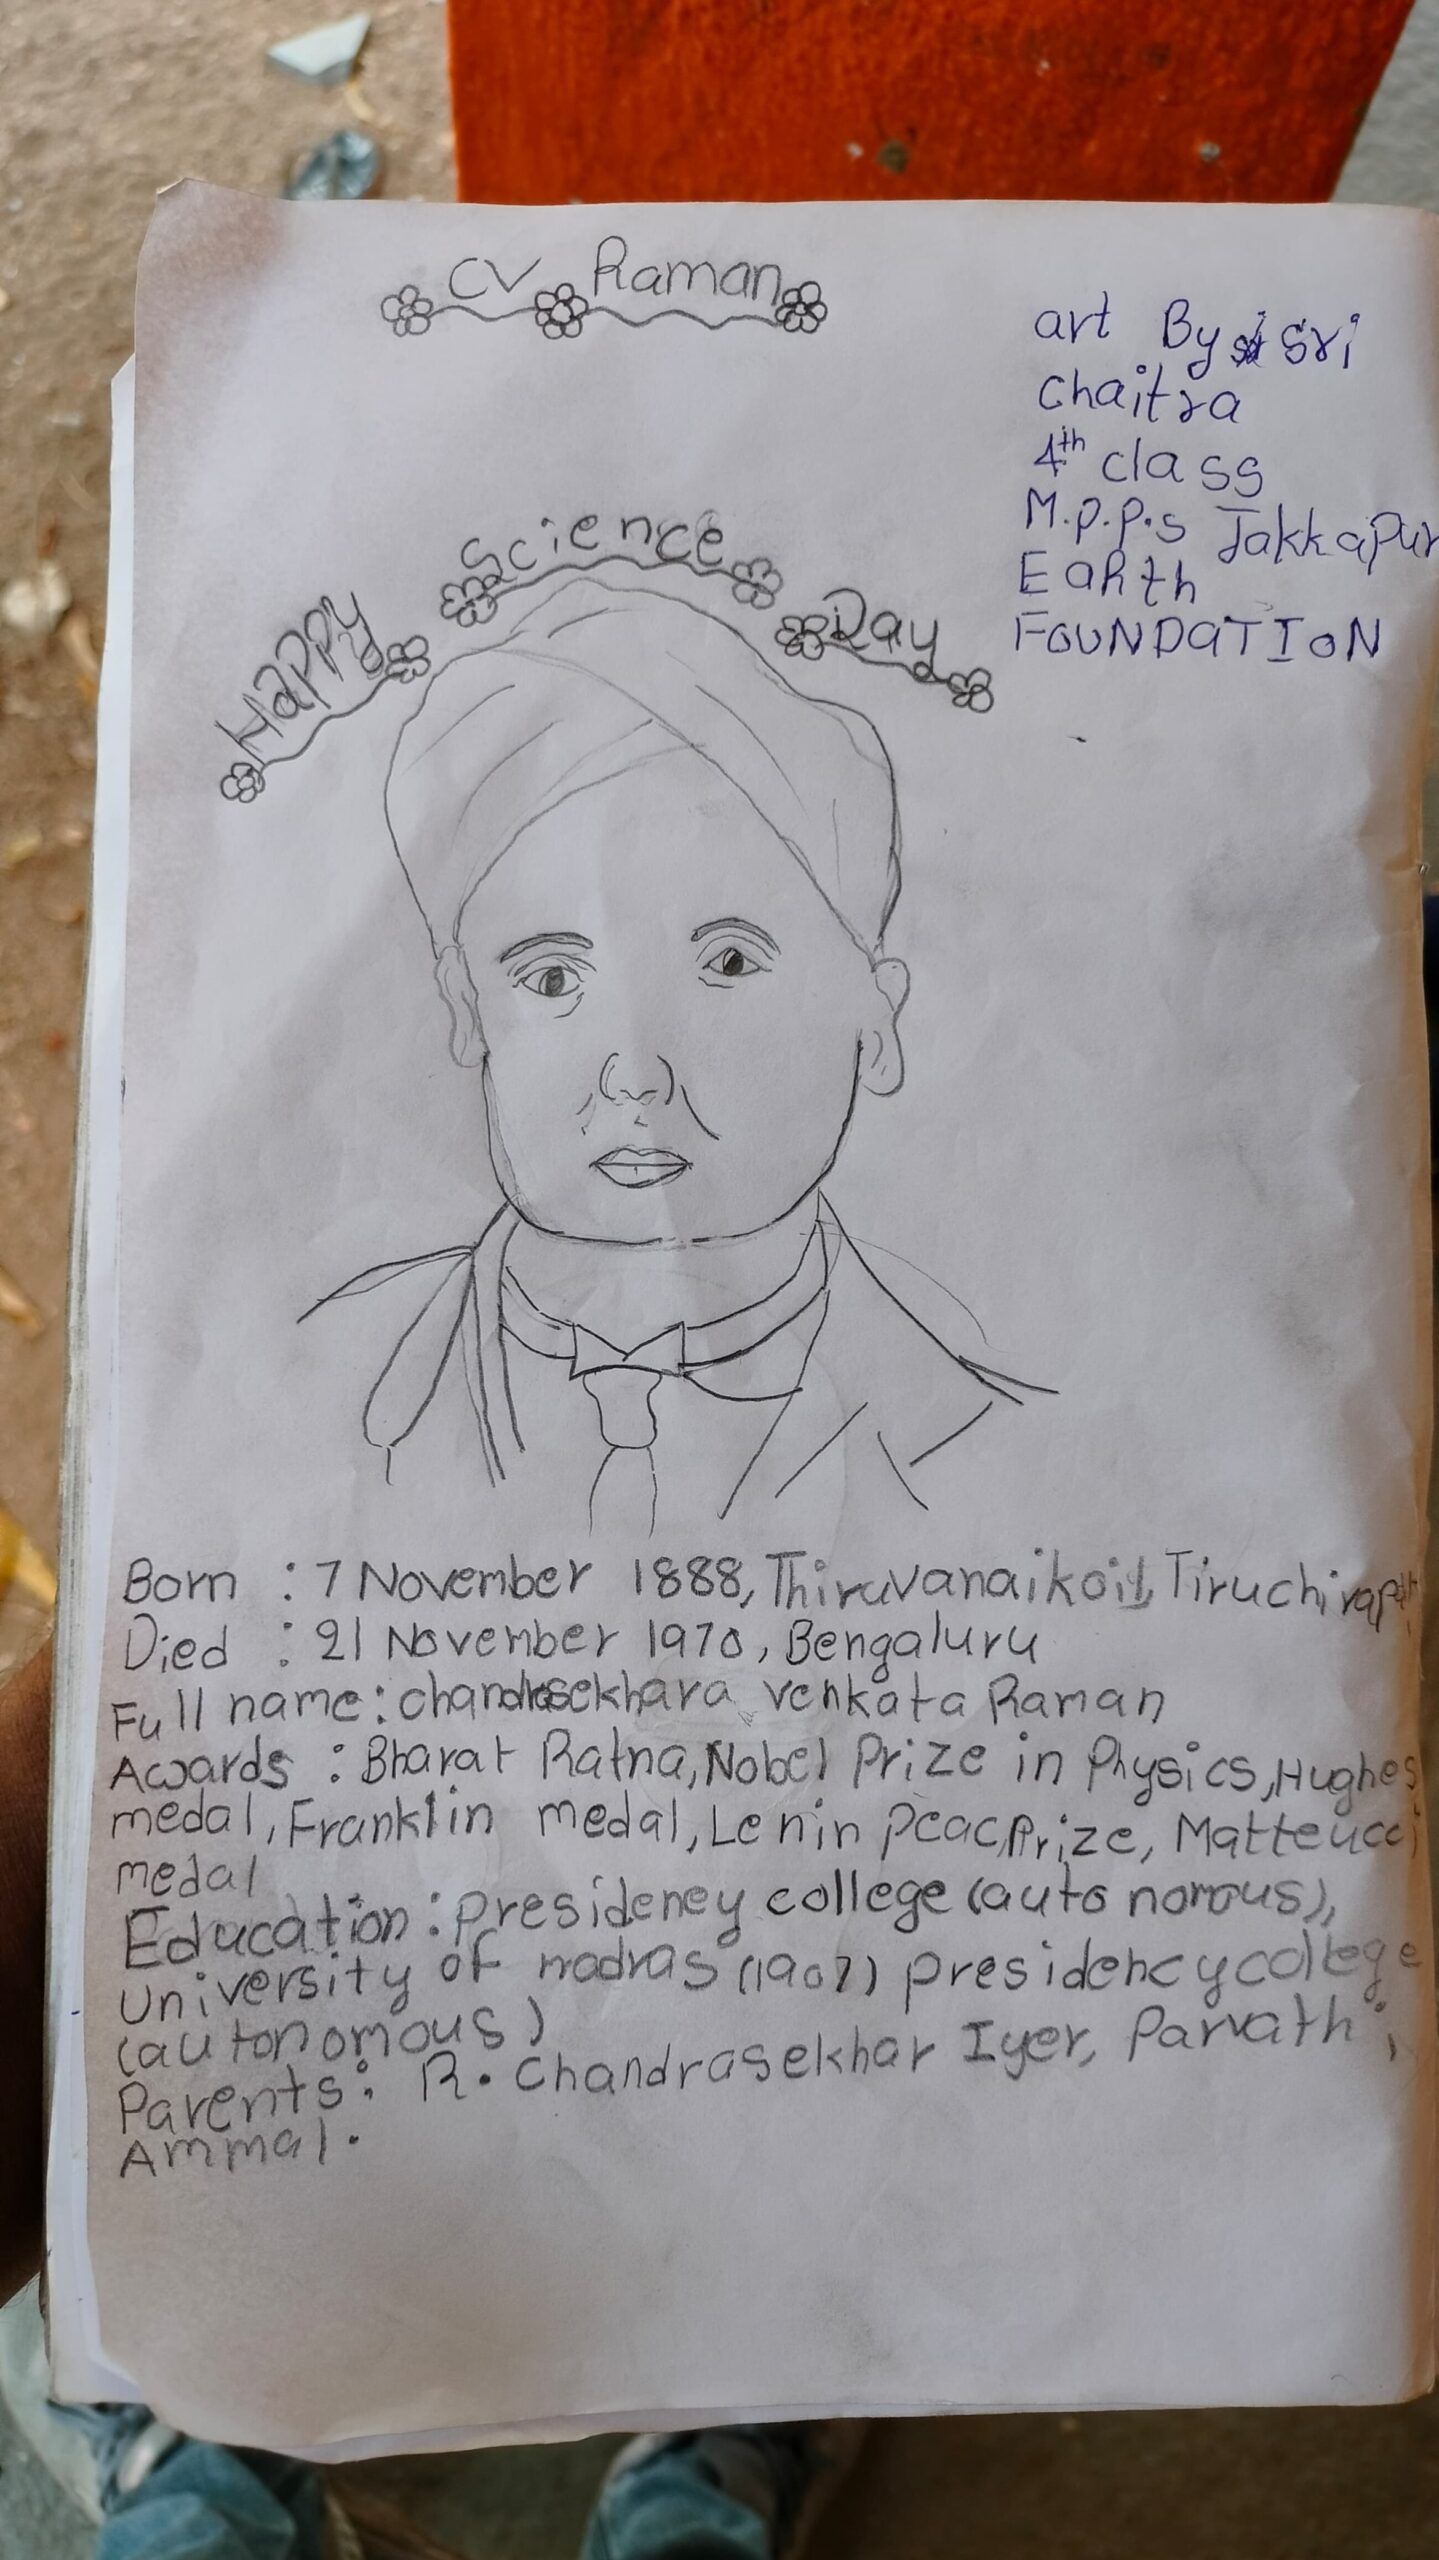 CV Raman
art By Sri
Chaitra
4th class
M.p.p.s Jakkapur
Earth
FOUNDATION
Happy Science Day
Born : 7 November 1888, Thiruvanaikoil, Tiruchirapa
Died : 21 November 1970, Bengaluru
Full name : chandrasekhara venkata Raman
Awards : Bharat Ratna, Nobel Prize in Physics, Hughes
medal, Franklin medal, Lenin peac Prize, Matteucci
medal
Education : presideney college (auto nomous),
University of madras (1907) presidency college
(autonomous)
Parents : R. Chandrasekhar Iyer, Parvathi,
Ammal.